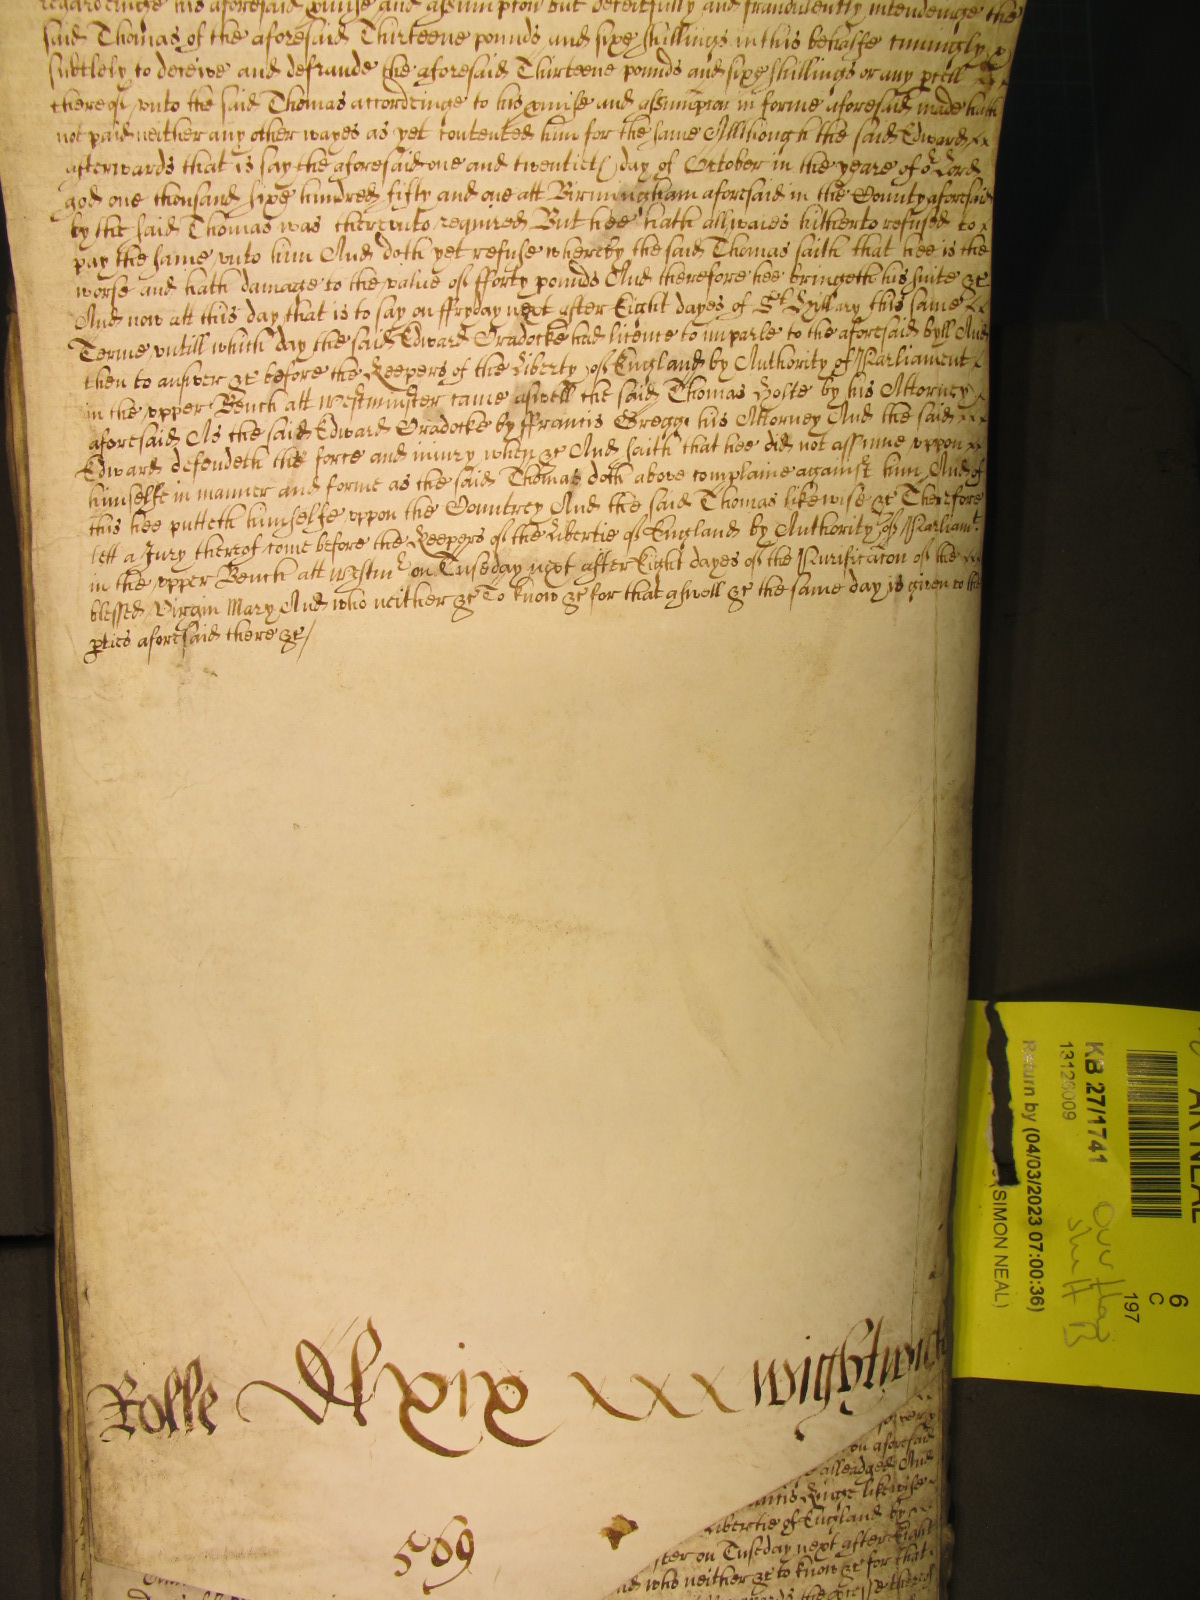 regardeinge his aforesaid pmise and assumpton but deceitfully and fraudulently intendeinge the
said Thomas of the aforesaid Thirteene pounds and sixe shillings in this behalfe cuningly
subtlely to deceive and defraude the aforesaid Thirteene pounds and sixe shillings or any pcell
thereof vnto the said Thomas accordeinge to his pmise and assumpcon in forme aforesaid made hath
not paid neither any other wayes as yet contented him for the same Allthough the said Edward
afterwards that is say the aforesaid one and twentieth day of October in the yeare of or Lord
god one thousand sixe hundred fifty and one att Birmingham aforesaid in the County aforesaid
by the said Thomas was therevnto required But hee hath allwaies hitherto refused to
pay the same vnto him And doth yet refuse whereby the said Thomas saith that hee is the
worse and hath damage to the value of fforty pounds And therefore hee bringeth his suite &c
And now att this day that is to say on ffryday next after Eight dayes of St Hyllary this same
Terme vntill which day the said Edward Cradocke had licence to imparle to the aforesaid byll And
then to answer &c before the Keepers of the Liberty of England by Authority of Parliament
in the vpper Bench att Westminster came aswell the said Thomas Holte by his Attorney
aforesaid As the said Edward Cradocke by ffrancis Gregge his Attorney And the said
Edward defendeth the force and iniury when &c And saith that hee did not assume vppon
himselfe in manner and forme as the said Thomas doth above complaine against him And of
this hee putteth himselfe vppon the Countrey And the said Thomas likewise &c Therefore
lett a Jury thereof come before the Keepers of the Libertie of England by Authority of Parliamt
in the vpper Bench att Westmr on Tuseday next after Eight dayes of the Purificacon of the
blessed Virgin Mary And who neither &c To know &c for that aswell &c the same day is given to the
pties aforesaid there &c/
Rolle Dlxix xxx Wightwick
569
on aforesaid
alleadged And
likewise
Libertie of England by
ster on Tuseday next after Eight
nd who neither &c to know &c for that
KB 27/1741
13126009
Return by (04/03/2023 07:00:36)
(SIMON NEAL)
6
C
197